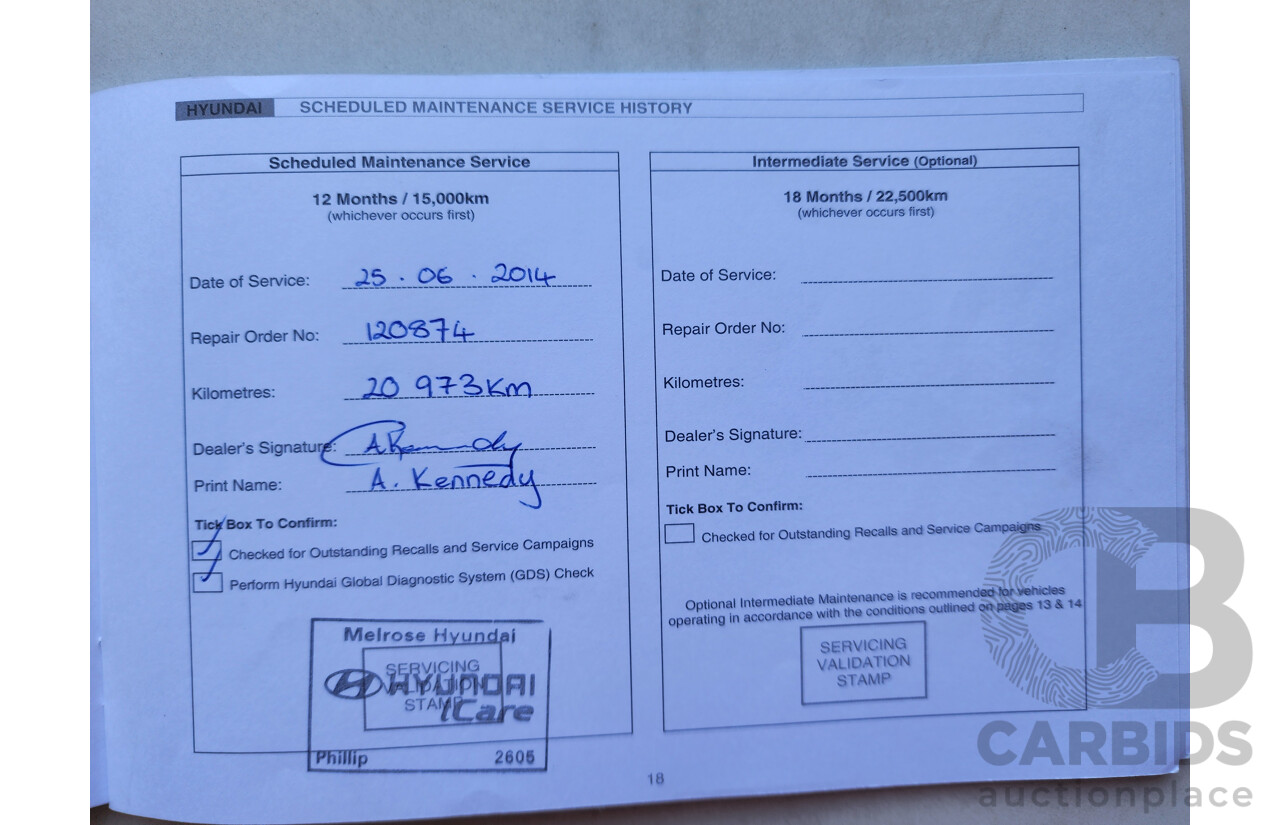 HYUNDAI SCHEDULED MAINTENANCE SERVICE HISTORY
Scheduled Maintenance Service
12 Months / 15,000km
(whichever occurs first)
Date of Service: 25 . 06 . 2014
Repair Order No: 120874
Kilometres: 20 973km
Dealer's Signature: A Kennedy
Print Name: A. Kennedy
Tick Box To Confirm:
Checked for Outstanding Recalls and Service Campaigns
Perform Hyundai Global Diagnostic System (GDS) Check
Melrose Hyundai
SERVICING
VALIDATION
STAMP
HYUNDAI
iCare
Phillip 2605
Intermediate Service (Optional)
18 Months / 22,500km
(whichever occurs first)
Date of Service:
Repair Order No:
Kilometres:
Dealer's Signature:
Print Name:
Tick Box To Confirm:
Checked for Outstanding Recalls and Service Campaigns
Optional Intermediate Maintenance is recommended for vehicles
operating in accordance with the conditions outlined on pages 13 & 14
SERVICING
VALIDATION
STAMP
18
CB
CARBIDS
auctionplace